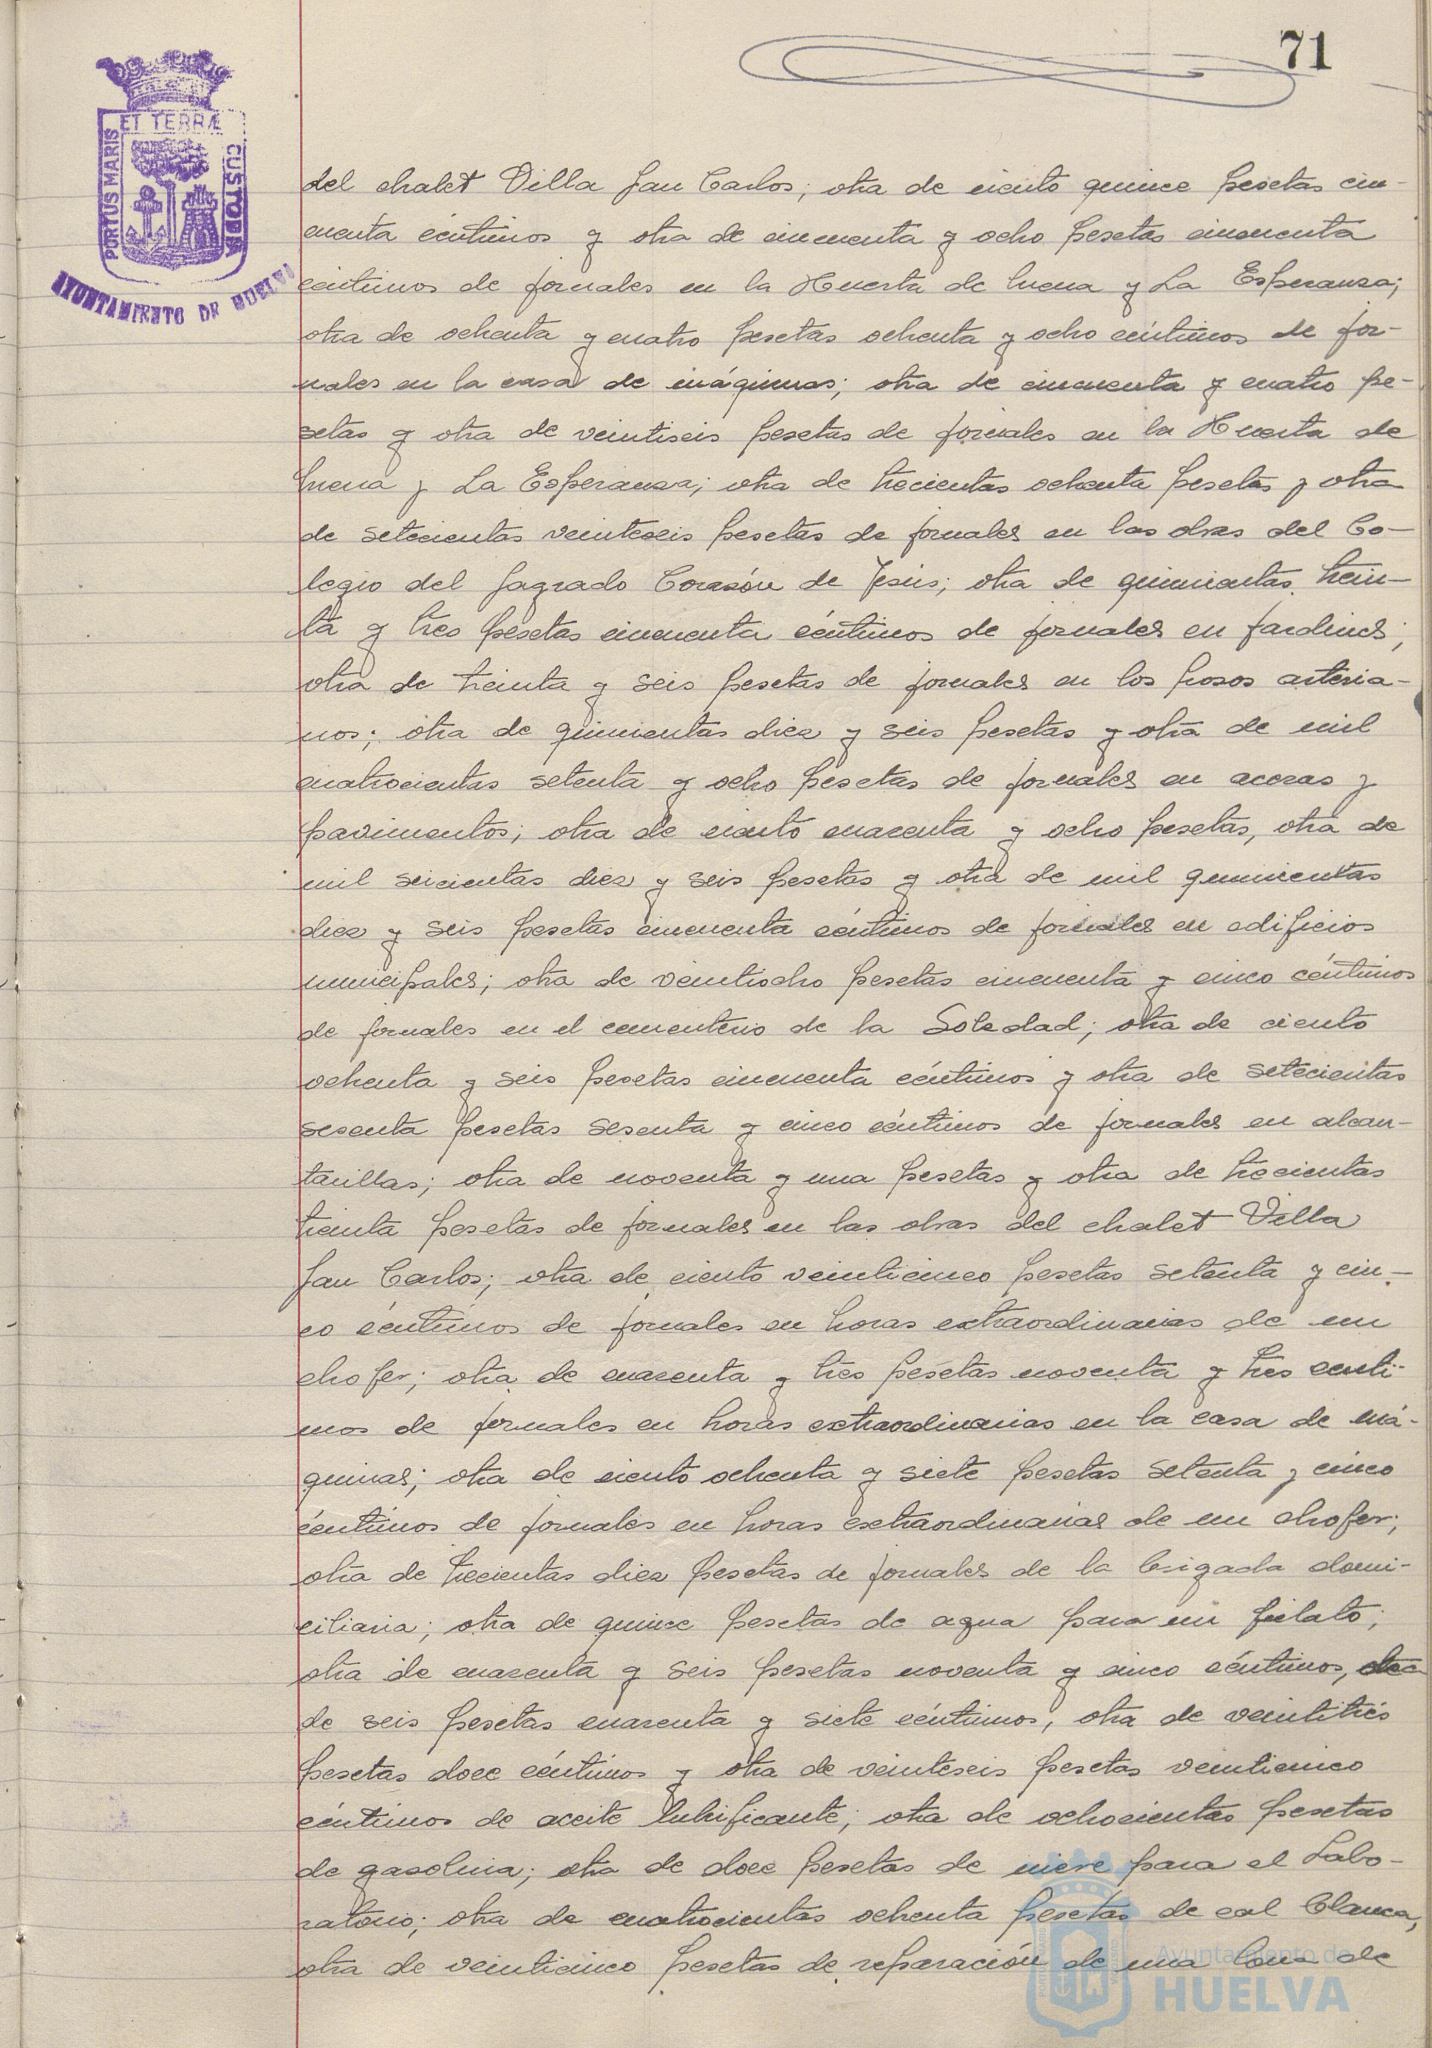 71
PORTUS MARIS ET TERRÆ CUSTODIA
AYUNTAMIENTO DE HUELVA
del chalet Villa San Carlos; otra de ciento quince pesetas cin-
cuenta céntimos y otra de cincuenta y ocho pesetas cincuenta
céntimos de jornales en la Huerta de Mena y La Esperanza;
otra de ochenta y cuatro pesetas ochenta y ocho céntimos de jor-
nales en la casa de máquinas; otra de cincuenta y cuatro pe-
setas y otra de veintiseis pesetas de jornales en la Huerta de
Mena y La Esperanza; otra de trecientas ochenta pesetas y otra
de setecientas veinteseis pesetas de jornales en las obras del Co-
legio del Sagrado Corazón de Jesús; otra de quinientas trein-
ta y tres pesetas cincuenta céntimos de jornales en jardines;
otra de treinta y seis pesetas de jornales en los pozos artesia-
nos; otra de quinientas diez y seis pesetas y otra de mil
cuatrocientas setenta y ocho pesetas de jornales en aceras y
pavimentos; otra de ciento cuarenta y ocho pesetas, otra de
mil seicientas diez y seis pesetas y otra de mil quinientas
diez y seis pesetas cincuenta céntimos de jornales en edificios
municipales; otra de veintiocho pesetas cincuenta y cinco céntimos
de jornales en el cementerio de la Soledad; otra de ciento
ochenta y seis pesetas cincuenta céntimos y otra de setecientas
sesenta pesetas sesenta y cinco céntimos de jornales en alcan-
tarillas; otra de noventa y una pesetas y otra de trecientas
treinta pesetas de jornales en las obras del chalet Villa
San Carlos; otra de ciento veinticinco pesetas setenta y cin-
co céntimos de jornales en horas extraordinarias de un
chofer; otra de cuarenta y tres pesetas noventa y tres centi-
mos de jornales en horas extraordinarias en la casa de má-
quinas; otra de ciento ochenta y siete pesetas setenta y cinco
céntimos de jornales en horas extraordinarias de un chofer;
otra de trecientas diez pesetas de jornales de la brigada domi-
ciliaria; otra de quince pesetas de agua para un fielato;
otra de cuarenta y seis pesetas noventa y cinco céntimos, otra
de seis pesetas cuarenta y siete céntimos, otra de veintitrés
pesetas doce céntimos y otra de veinteseis pesetas veinticinco
céntimos de aceite lubrificante; otra de ochocientas pesetas
de gasolina; otra de doce pesetas de nieve para el Labo-
ratorio; otra de cuatrocientas ochenta pesetas de cal blanca,
otra de veinticinco pesetas de reparación de una lona de
Ayuntamiento de
HUELVA